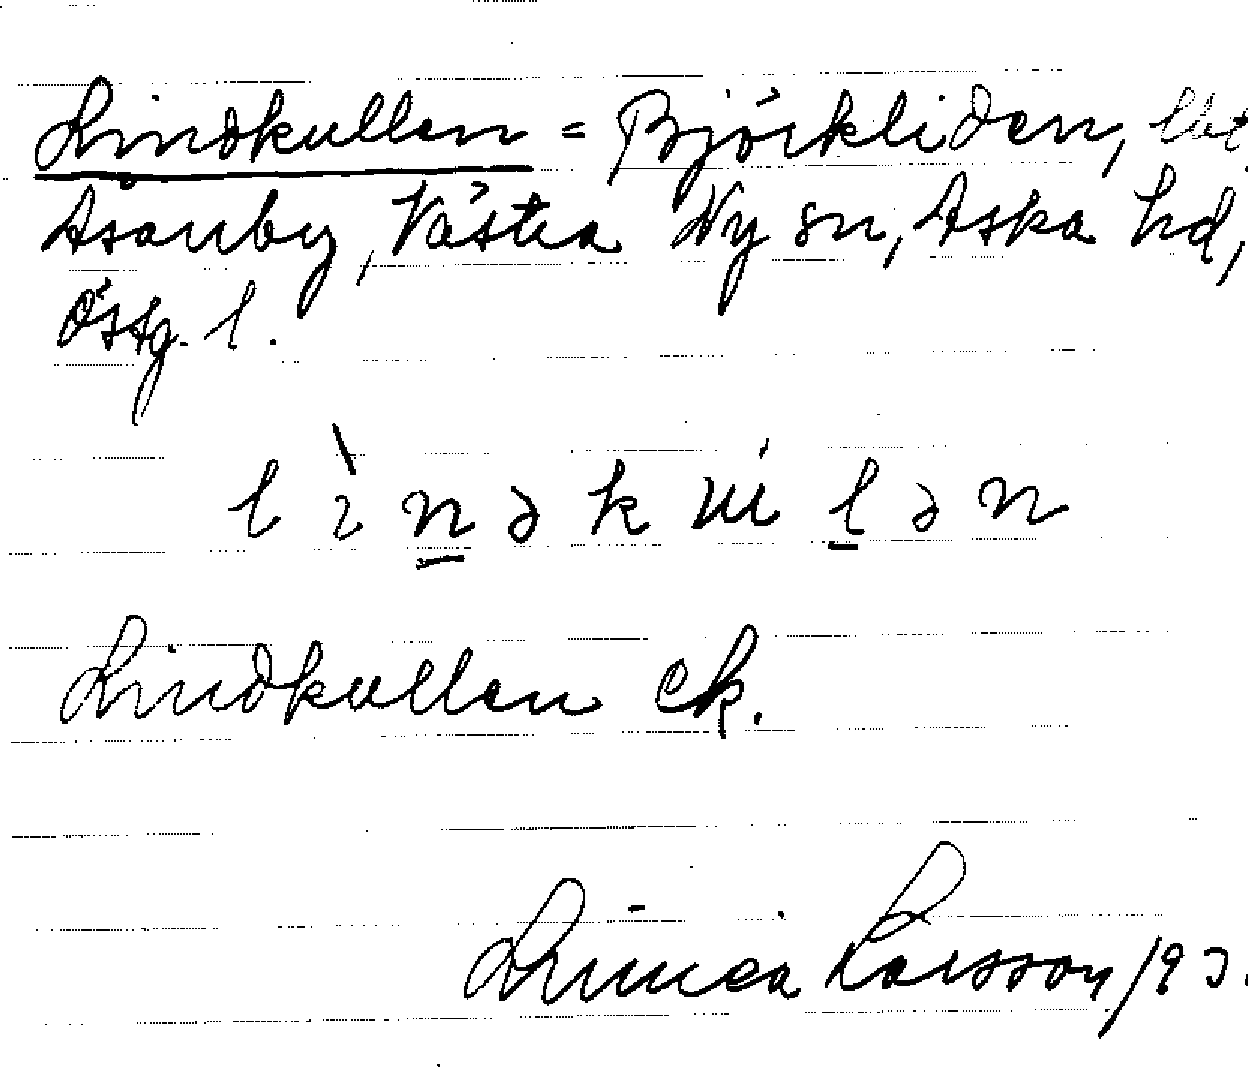 Lindkullen = Björkliden, lht
Åsanby, Västra Ny sn, Aska hd,
Östg. l.
lìnəkúlən
Lindkullen ek.
Linnea Larsson 193